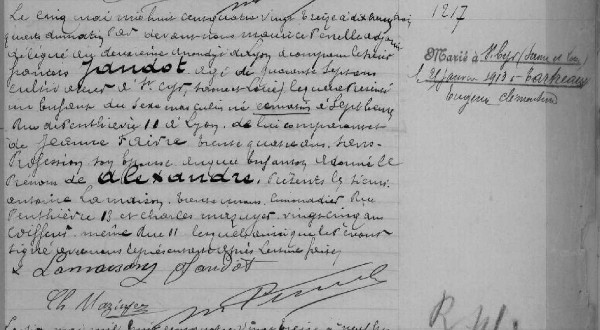 Le cinq mai mil huit cent quatre vingt treize à dix heures trois
quarts du matin Par devant nous Maurice Penelle adjoint
délégué du deuxième arrondt de Lyon a comparu le sieur
françois Jandot, agé de quarante sept ans
cultivateur à St Cyr, Saône et Loire, lequel a présenté
un Enfant du sexe masculin né ce matin à Sept heures
Rue de Penthièvre 11 à Lyon, de lui comparant
de Jeanne Faivre trente quatre ans, sans
Profession son épouse auquel Enfant on a donné le
Prénom de Alexandre. Présents les sieurs
antoine Lamaison, trente un ans, limonadier Rue
Penthièvre 13 et Charles Mazuyer vingt cinq ans
Coiffeur même Rue 11 lesquels ainsi que le
signé avec nous le présent acte après Lecture faite
Lamaison Jandot
Ch Mazuyer
1217
Marié à St Cyr (Saône et Loire)
janvier 1913
Eugénie Clémentine